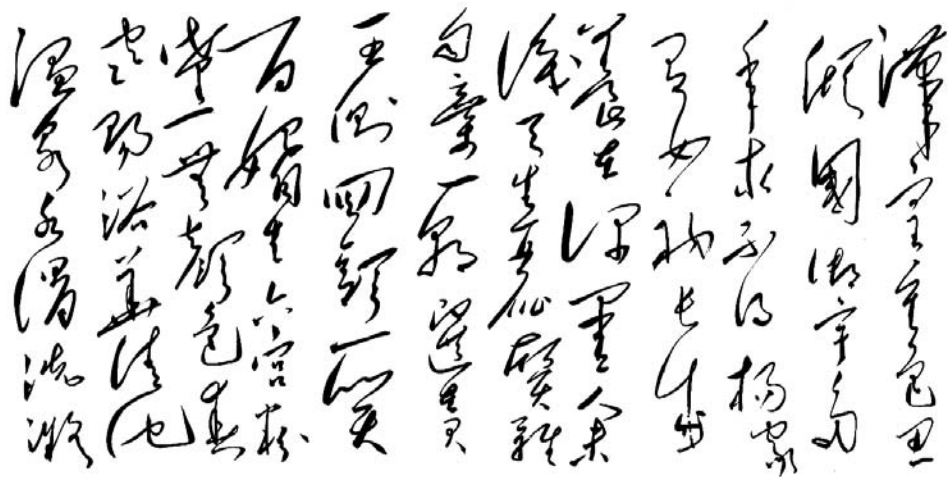 漢皇重色思
傾國御宇多
年求不得楊家
有女初長成
養在深閨人未
識天生麗質難
自棄一朝選在君
王側回頭一笑
百媚生六宮粉
黛無顏色春
寒賜浴華清池
溫泉水滑洗凝